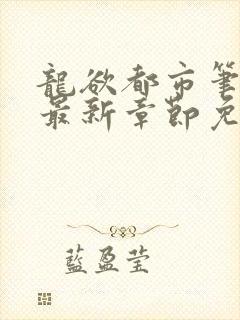 龍欲都市筆
最新章節免
藍盈莹